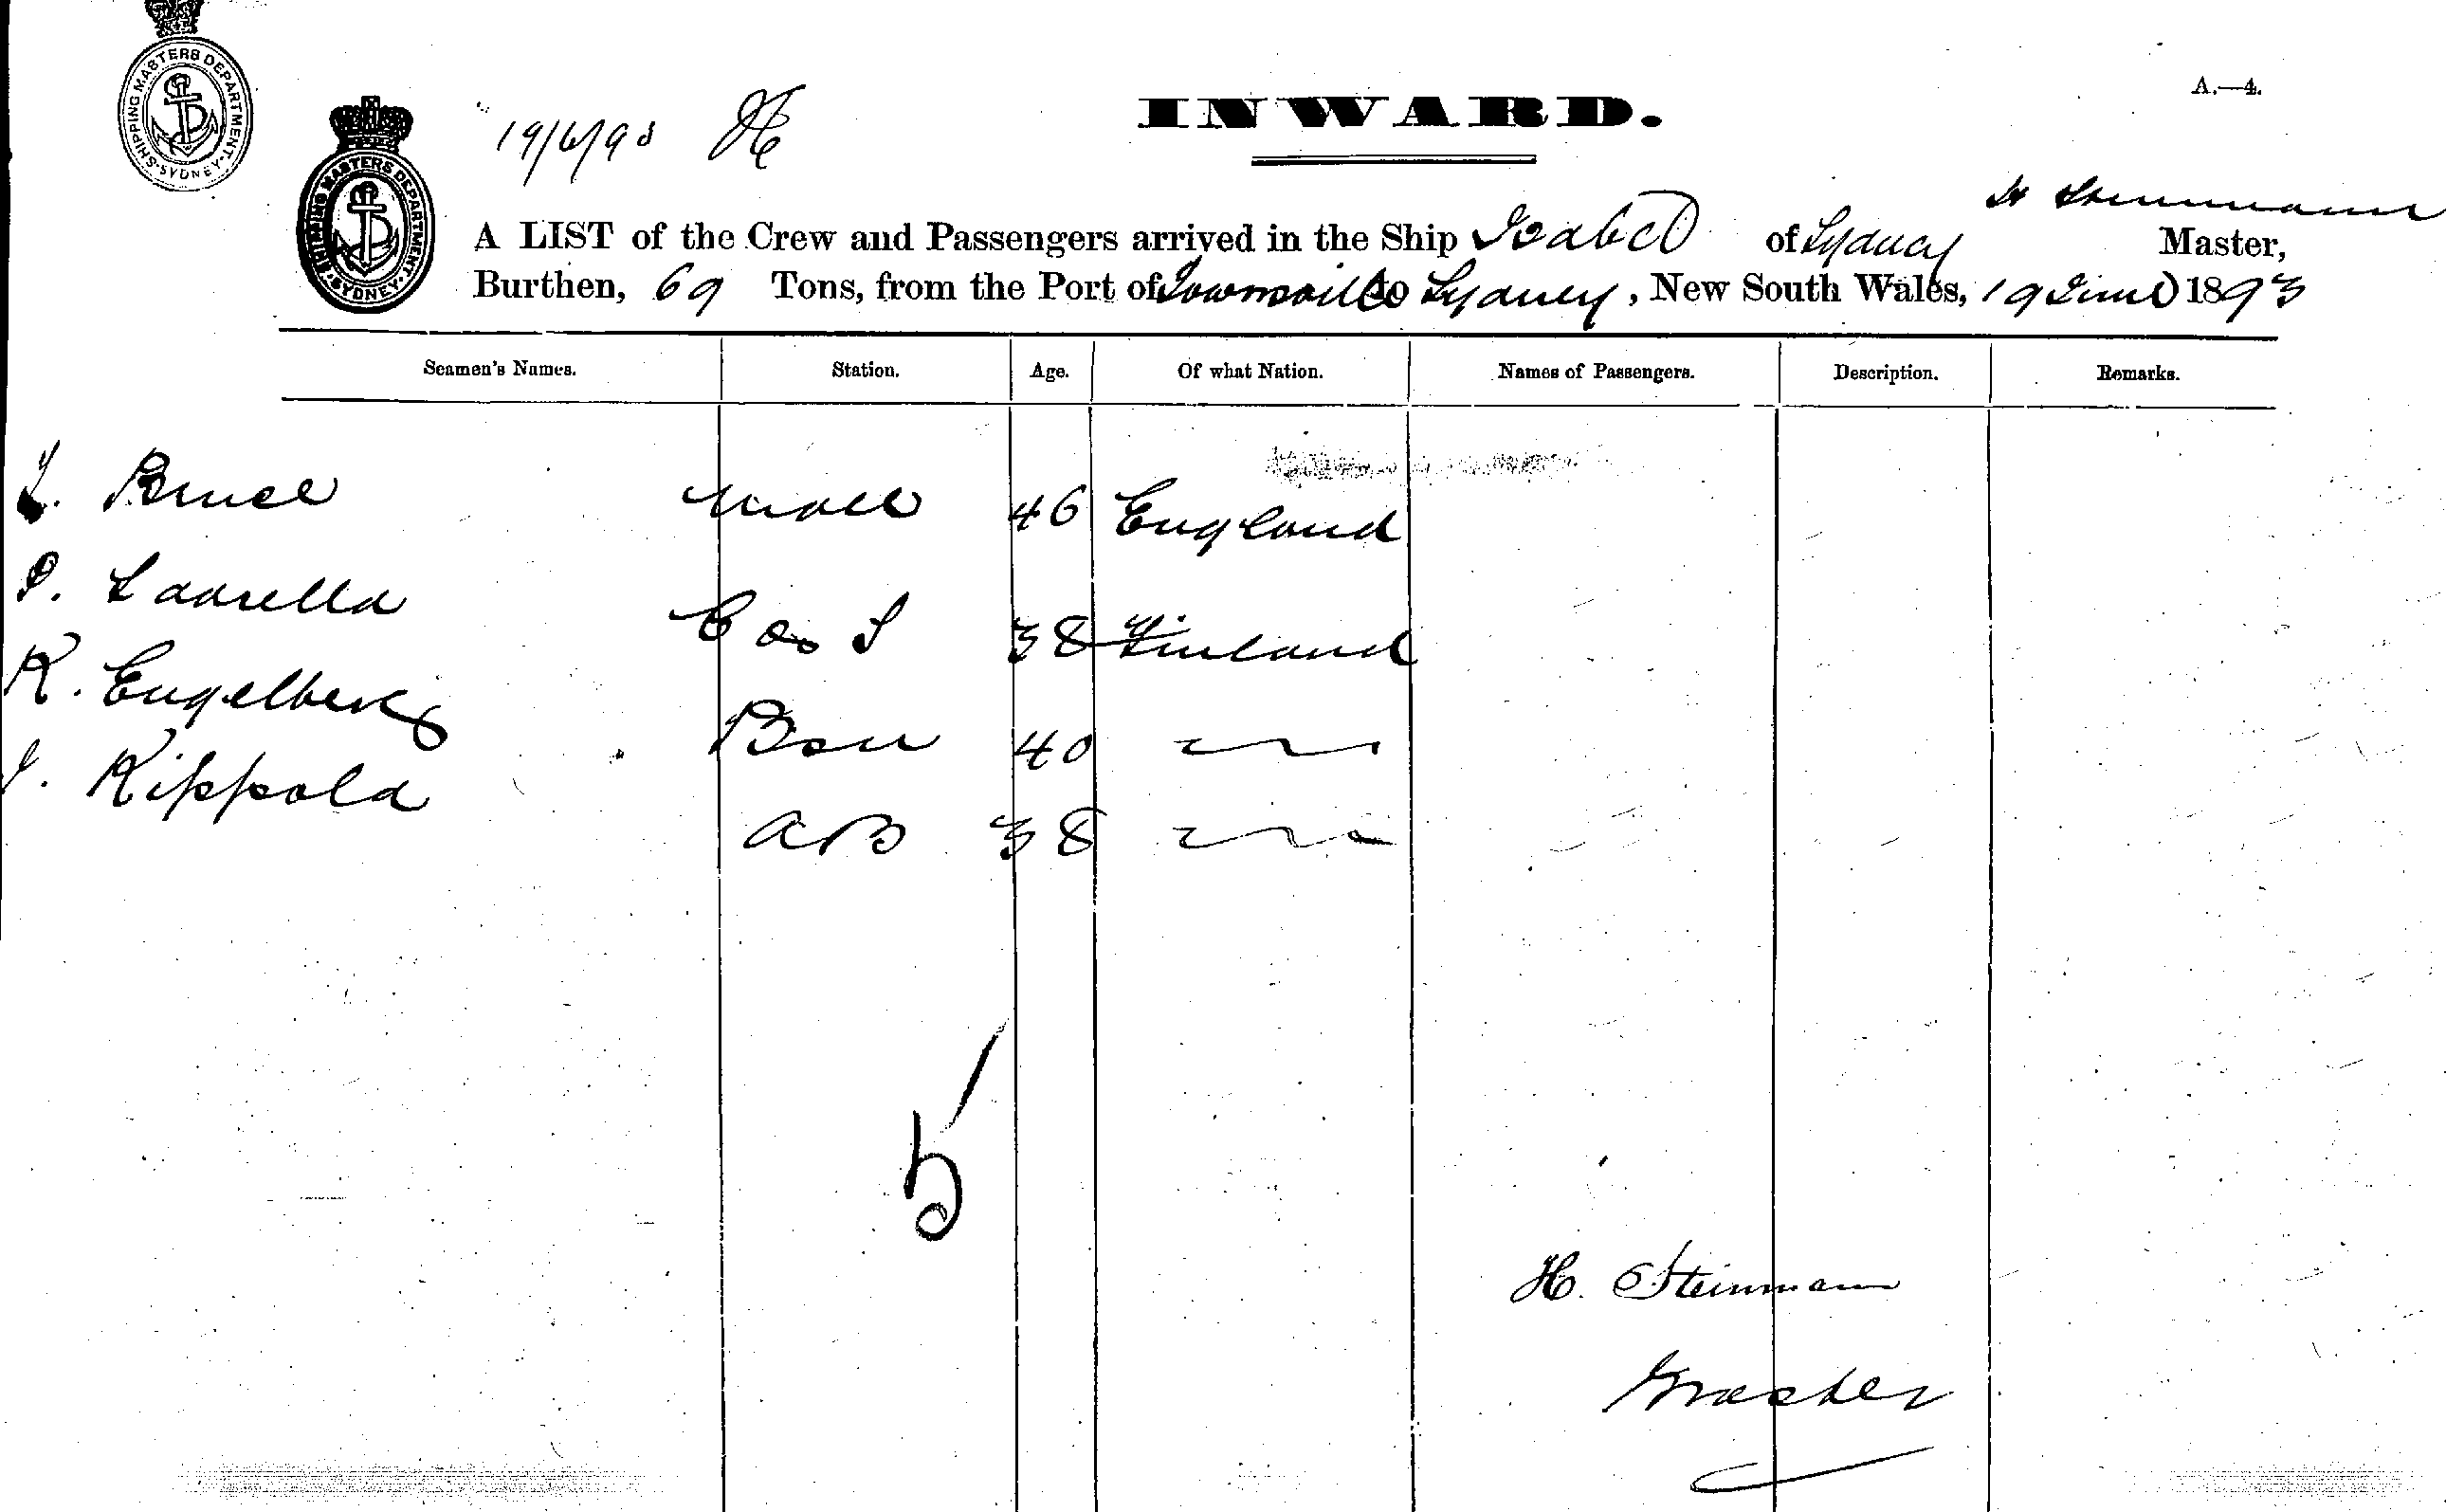 SHIPPING MASTERS DEPARTMENT · SYDNEY ·
SHIPPING MASTERS DEPARTMENT · SYDNEY ·
19/6/93
INWARD.
A.—4.
A LIST of the Crew and Passengers arrived in the Ship Isabel of Sydney H Steinmann Master,
Burthen, 69 Tons, from the Port of Townsville to Sydney, New South Wales, 19 June 1893
Seamen's Names. Station. Age. Of what Nation. Names of Passengers. Description. Remarks.
Bruce Mate 46 England
Laurella C & S 38 Finland
K. Engelberg Bsn 40
J. Kippola AB 38
5
H. Steinmann
Master